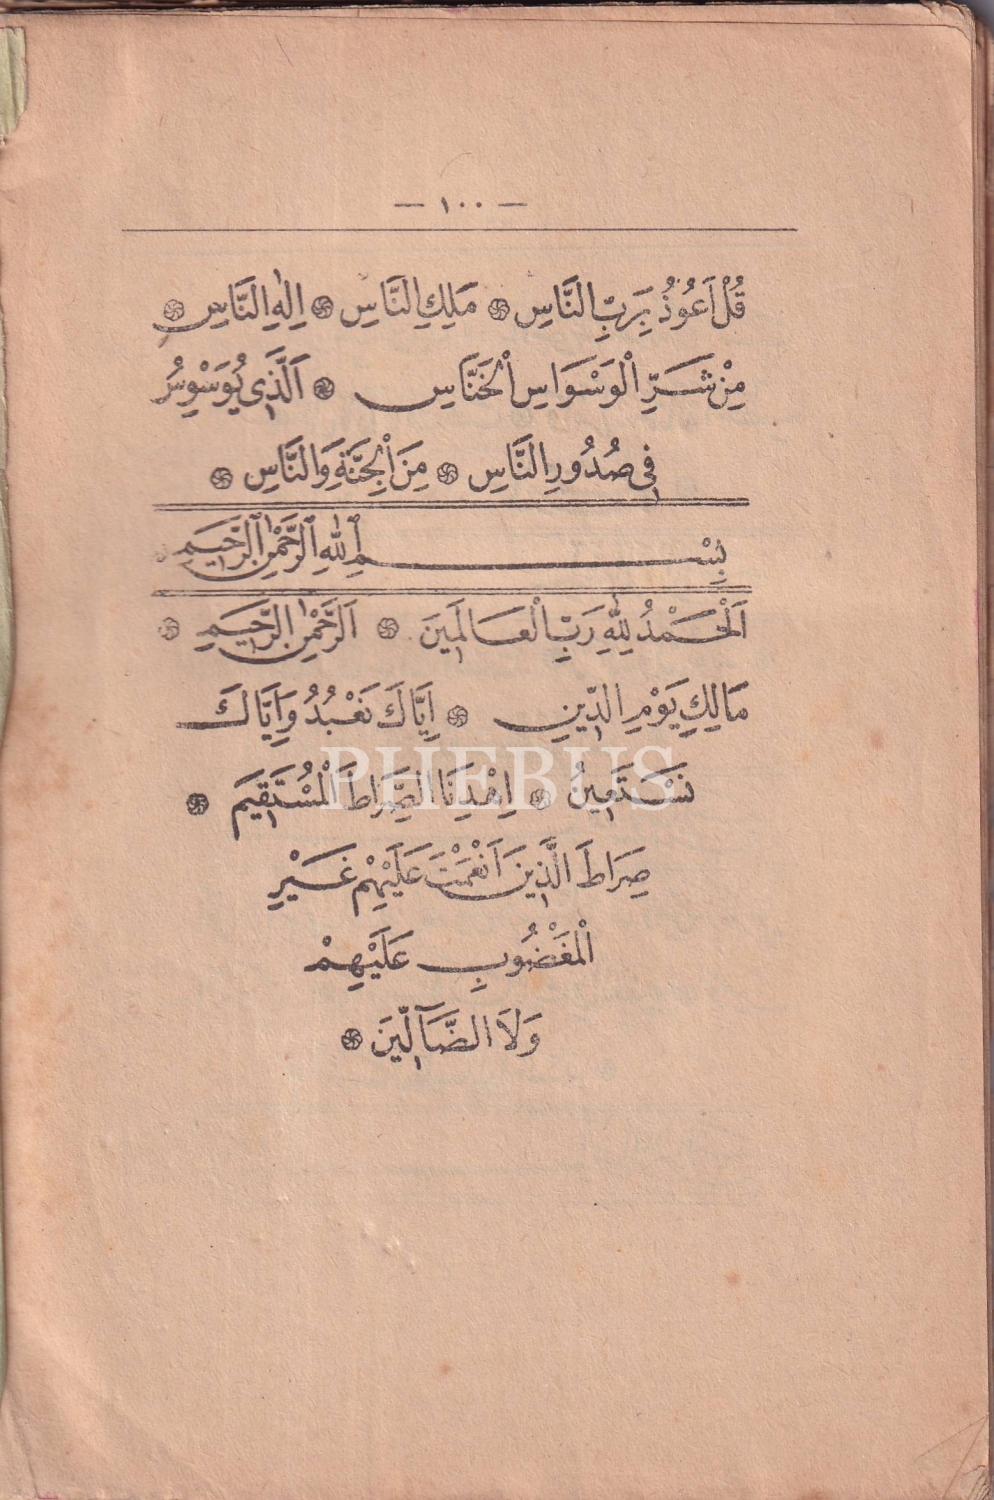 — ١٠٠ —
قُلْ اَعُوذُ بِرَبِّ النَّاسِ ۞ مَلِكِ النَّاسِ ۞ اِلٰهِ النَّاسِ ۞
مِنْ شَرِّ الْوَسْوَاسِ الْخَنَّاسِ ۞ اَلَّذِى يُوَسْوِسُ
فِى صُدُورِ النَّاسِ ۞ مِنَ الْجِنَّةِ وَالنَّاسِ ۞
بِسْمِ ٱللّٰهِ ٱلرَّحْمٰنِ ٱلرَّحِيمِ
اَلْحَمْدُ لِلّٰهِ رَبِّ الْعَالَمِينَ ۞ اَلرَّحْمٰنِ الرَّحِيمِ ۞
مَالِكِ يَوْمِ الدِّينِ ۞ اِيَّاكَ نَعْبُدُ وَاِيَّاكَ
نَسْتَعِينُ ۞ اِهْدِنَا الصِّرَاطَ الْمُسْتَقِيمَ ۞
صِرَاطَ الَّذِينَ اَنْعَمْتَ عَلَيْهِمْ غَيْرِ
الْمَغْضُوبِ عَلَيْهِمْ
وَلَا الضَّآلِّينَ ۞
PHEBUS